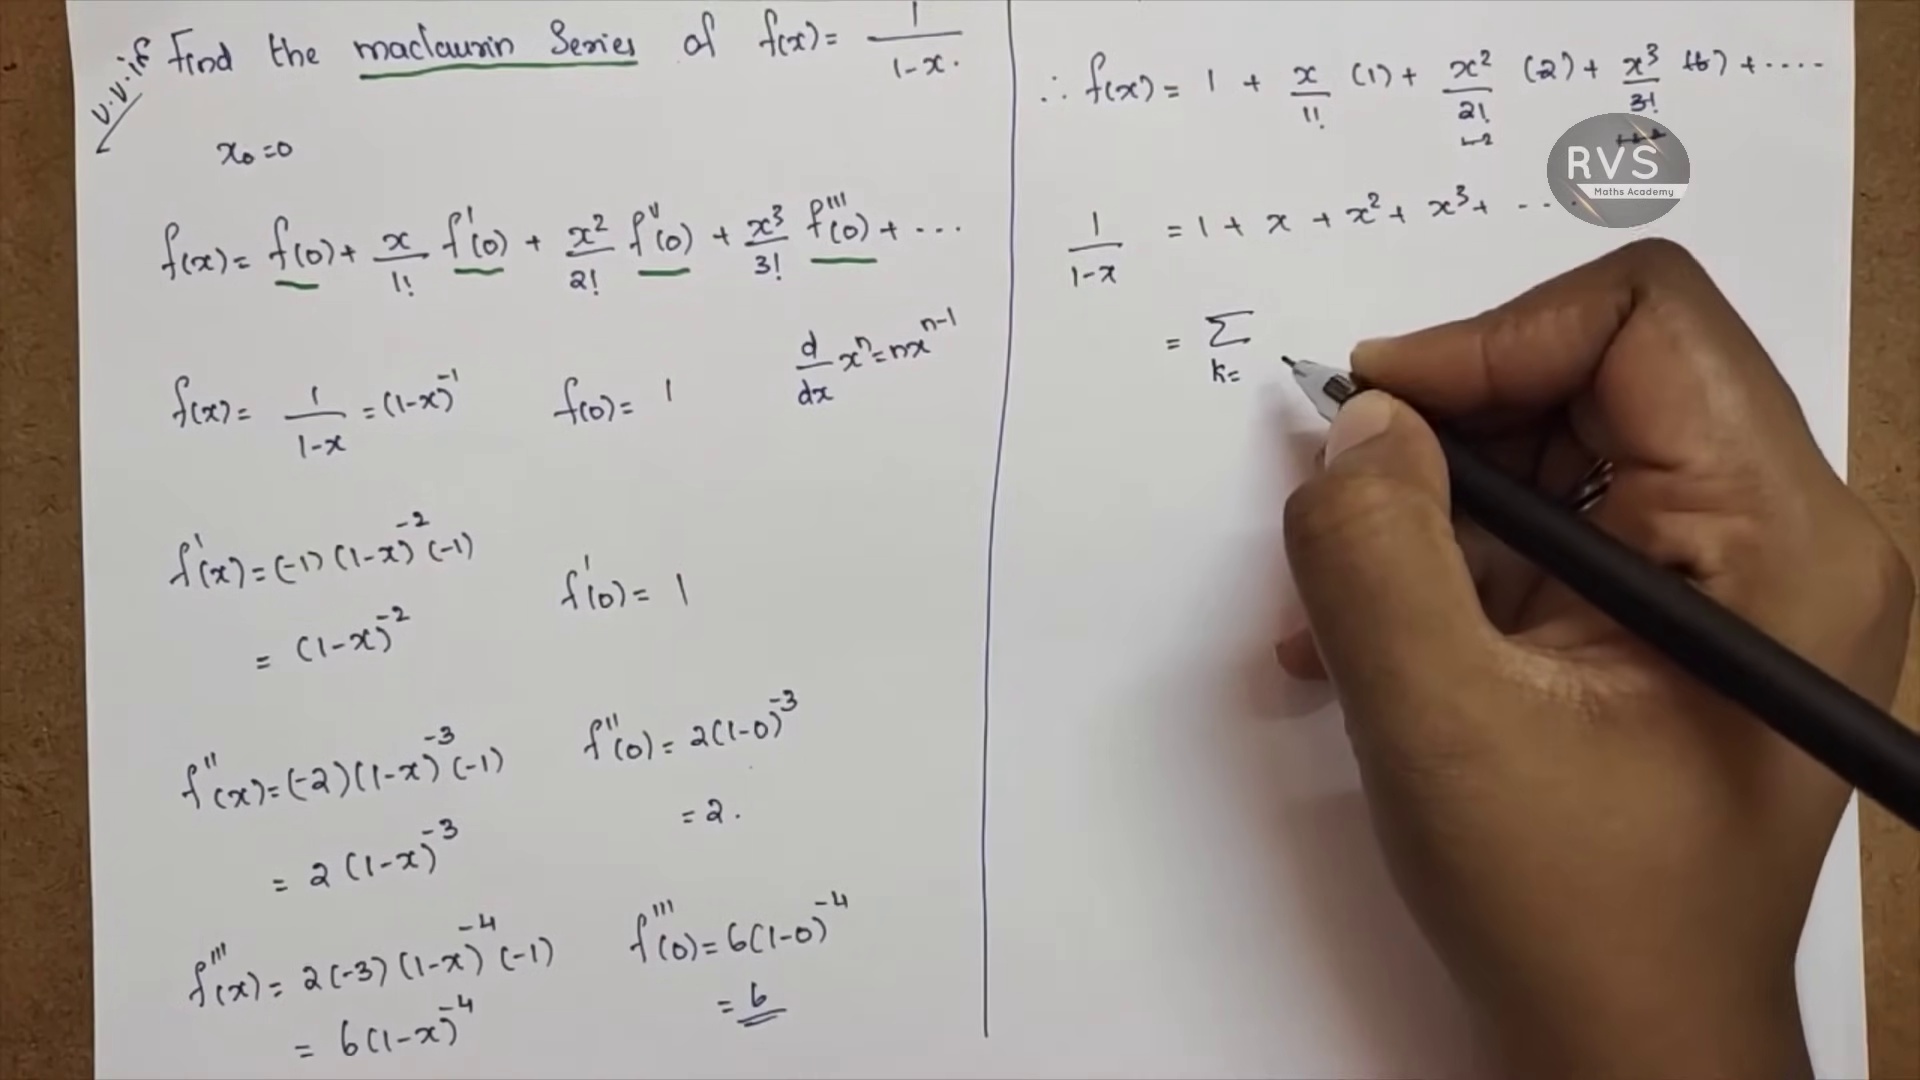 v.v.if Find the maclaurin Series of f(x) = 1/1-x.
x₀=0
f(x) = f(0) + x/1! f'(0) + x²/2! f''(0) + x³/3! f'''(0) + ...
d/dx xⁿ = nxⁿ⁻¹
f(x) = 1/1-x = (1-x)⁻¹ f(0) = 1
f'(x) = (-1) (1-x)⁻² (-1)
= (1-x)⁻² f'(0) = 1
f''(x) = (-2) (1-x)⁻³ (-1) f''(0) = 2(1-0)⁻³
= 2 (1-x)⁻³ = 2.
f'''(x) = 2(-3) (1-x)⁻⁴ (-1) f'''(0) = 6(1-0)⁻⁴
= 6(1-x)⁻⁴ = 6
∴ f(x) = 1 + x/1! (1) + x²/2! (2) + x³/3! (6) + ....
RVS
Maths Academy
1/1-x = 1 + x + x² + x³ + ...
= Σ
k=